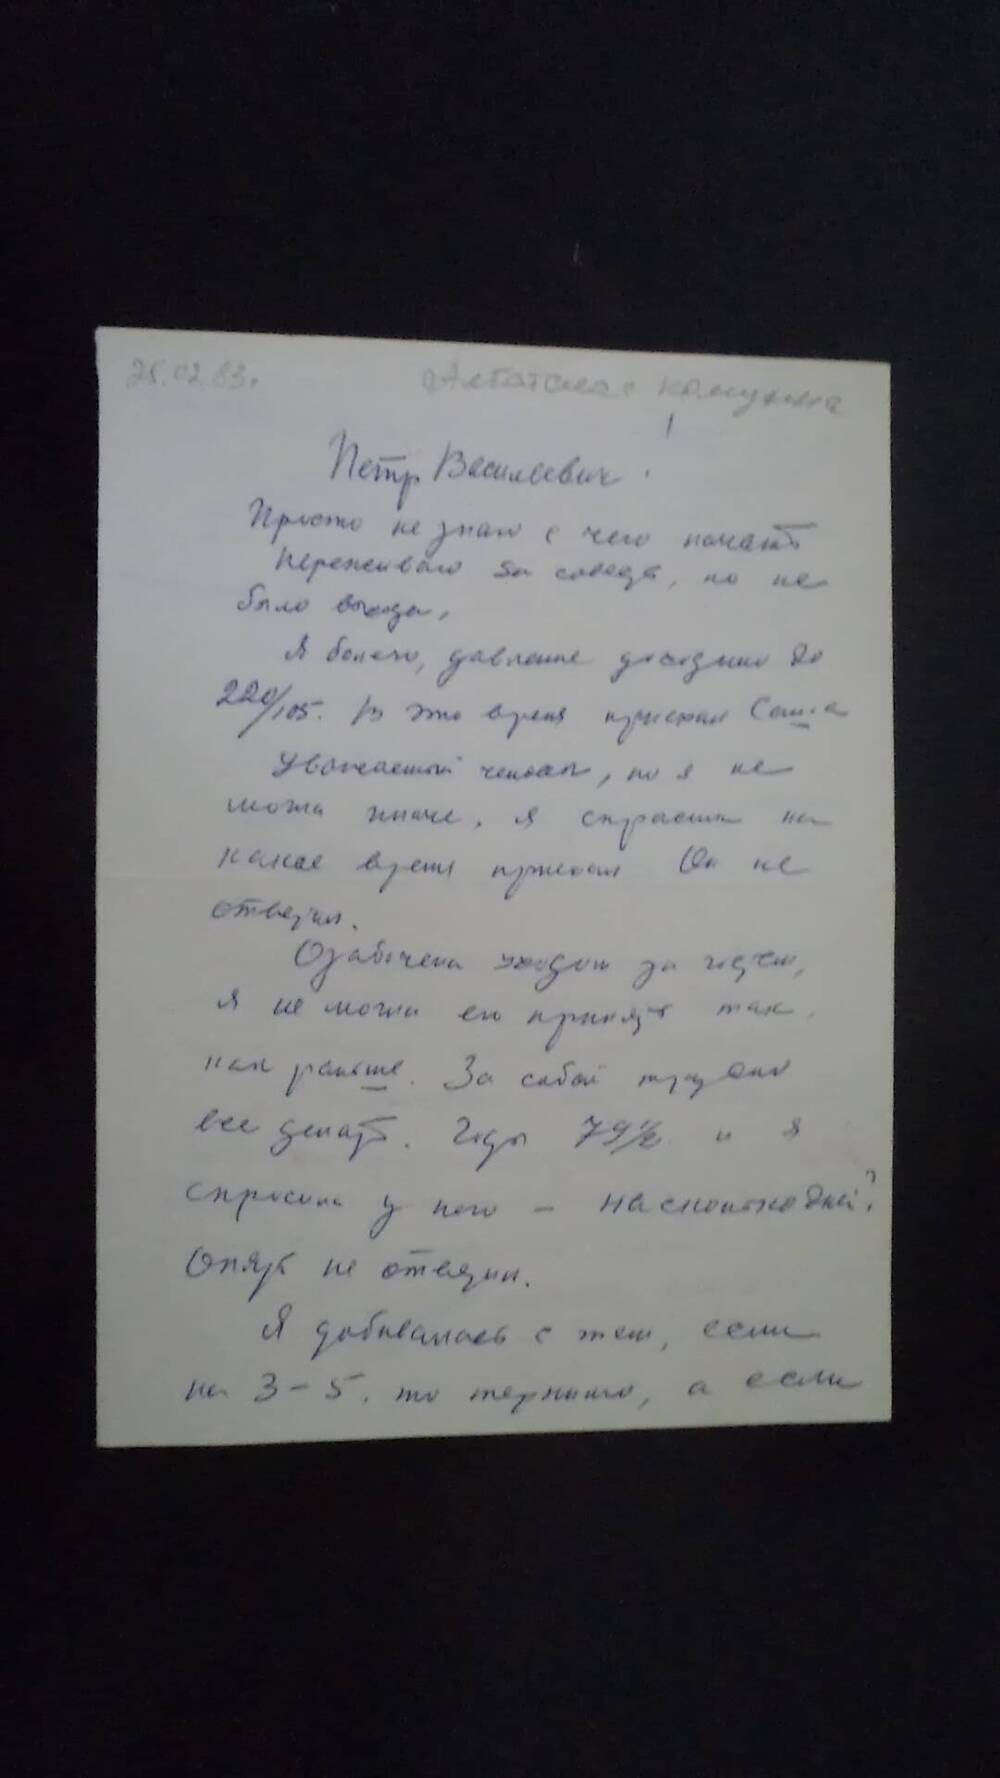 25.02.83г. Алтайская коммуна
Петр Васильевич!
Просто не знаю с чего начать
Переживаю за соседа, но не
было выхода,
Я болею, давление доходило до
220/105. В это время приехал Саша
Уважаемый человек, но я не
могла иначе, я спросила на
какое время приехал Он не
ответил.
Озабочена уходом за
я не могла его принять так,
как раньше. За собой трудно
все делать. Годы 79 1/2 и я
спросила у него – на сколько дней?
Опять не ответил.
Я добивалась с тем, если
на 3-5, то терпимо, а если